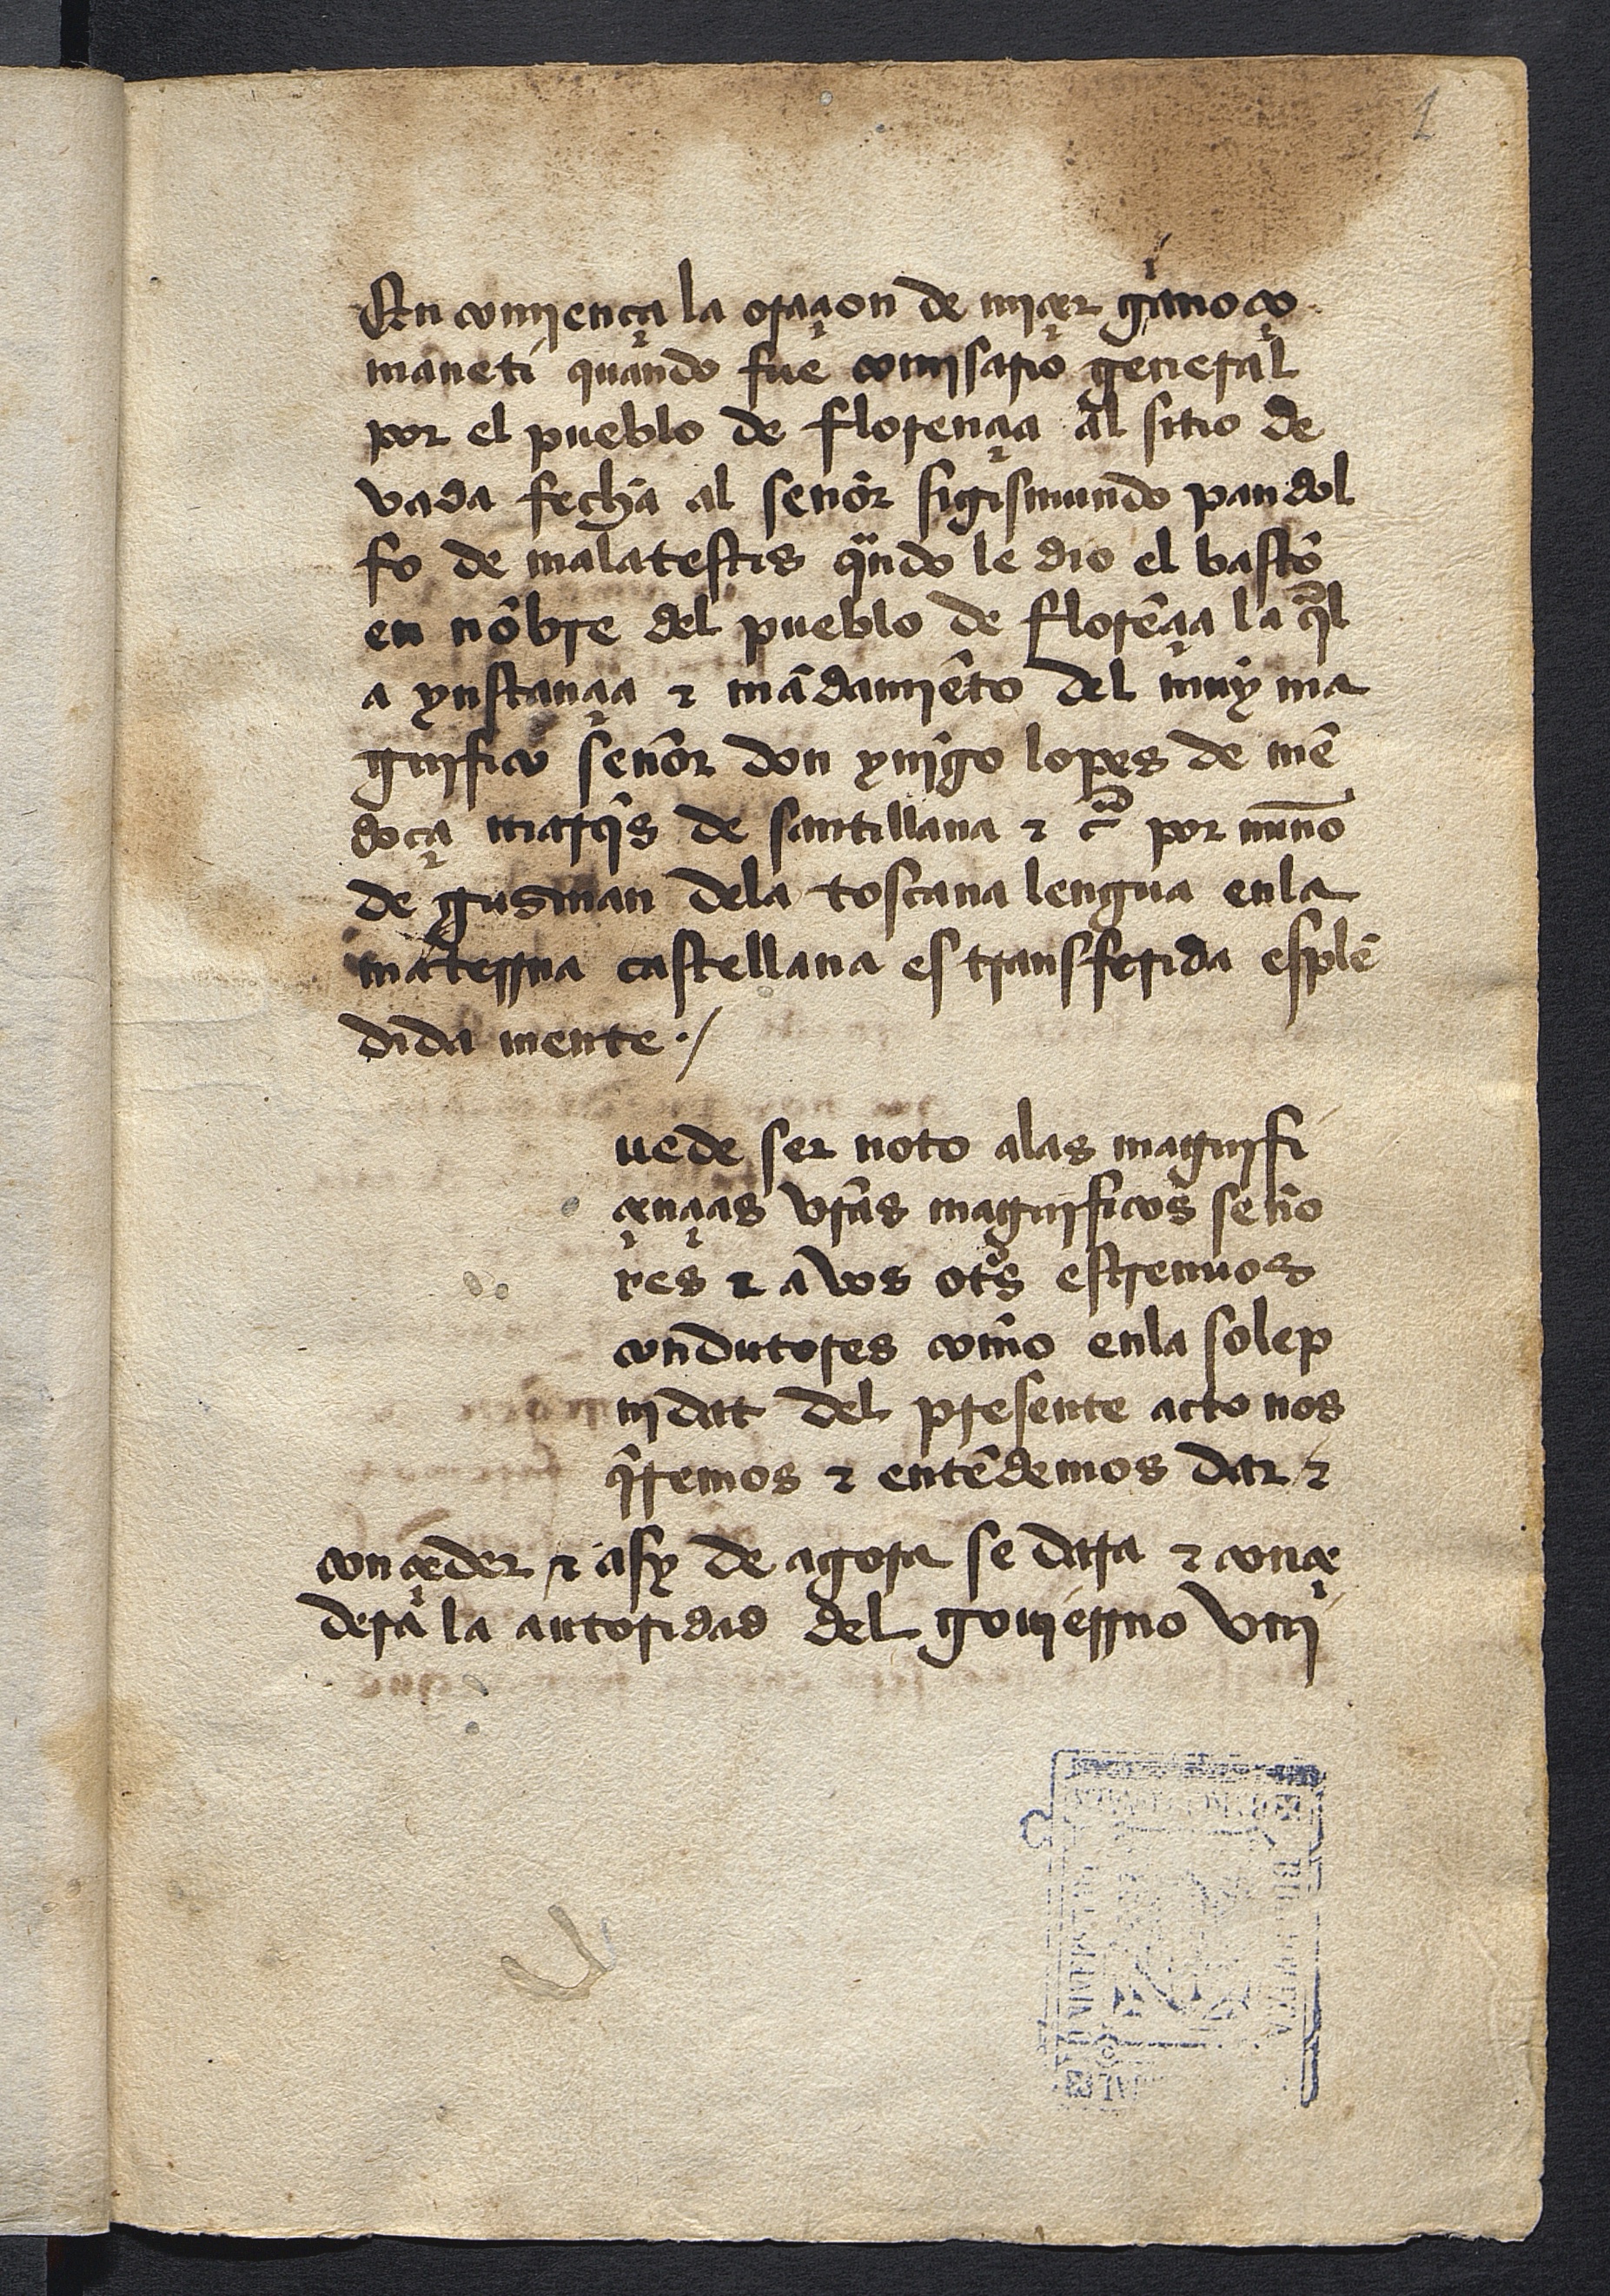 1
En comiença la oraçion de miçer gianoço
maneti quando fue comisario general
por el pueblo de florençia al sitio de
vada fecha al señor sigismundo pandol
fo de malatestis qũdo le dio el bastõ
en nõbre del pueblo de florẽçia la q̃l
a ynstançia ⁊ mãdamiẽto del muy ma
gnifico señor don ynigo lopes de mẽ
doça marq̃s de santillana ⁊ c̃ por nuño
de gusman dela toscana lengua enla
materrna castellana es transfferida esplẽ
dida mente ./
uede ser noto alas magnifi
çençias vr̃as magnificos seño
res ⁊ a vos otros estrenuos
condutores com̃o enla solep
nidat del presente acto nos
q̃remos ⁊ entẽdemos dar ⁊
conçeder ⁊ asy de agora se dara ⁊ conçe
dera la autoridad del gouierrno vni